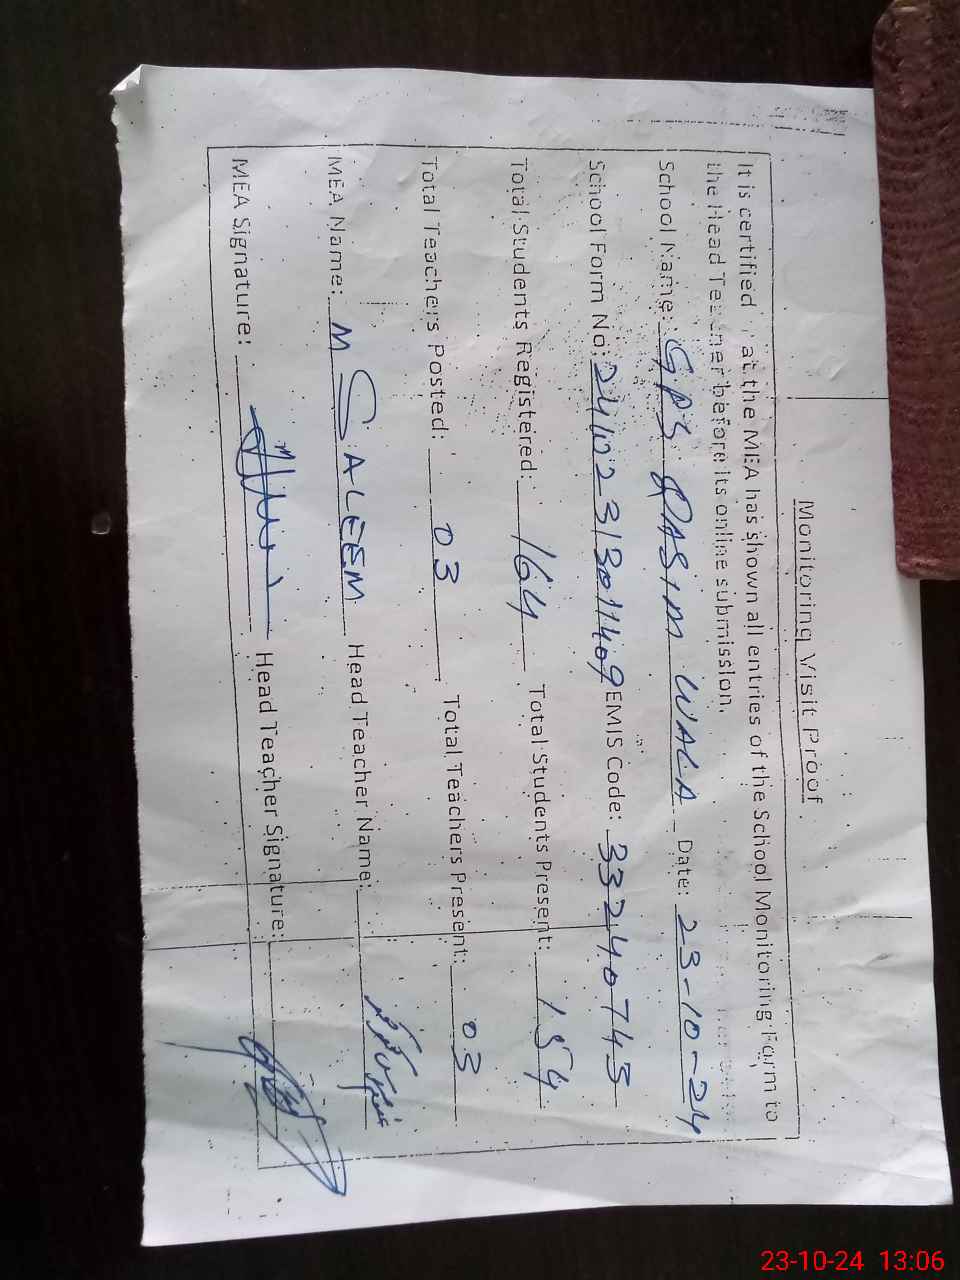 Monitoring Visit Proof
It is certified at the MEA has shown all entries of the School Monitoring Form to
the Head Teacher before its online submission.
School Name: GPS QASIM WALA Date: 23-10-24
School Form No: EMIS Code: 33240743
Total Students Registered: 164 Total Students Present: 154
Total Teachers Posted: 03 Total Teachers Present: 03
MEA Name: M SALEEM Head Teacher Name:
MEA Signature: Head Teacher Signature:
23-10-24 13:06